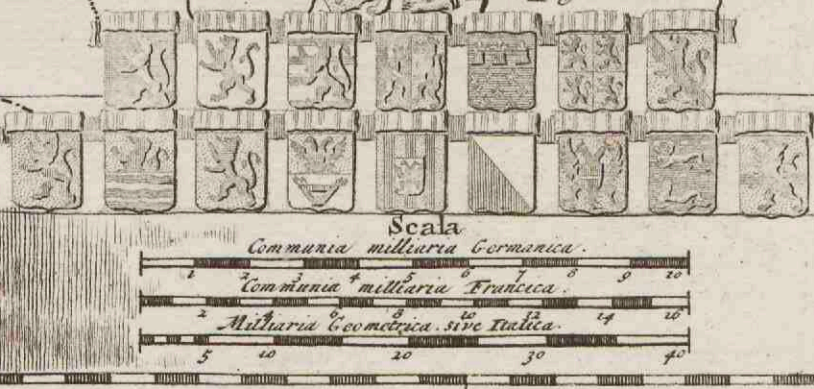 Scala
Communia milliaria Germanica.
1 2 3 4 5 6 7 8 9 10
Communia milliaria Francica.
2 4 6 8 10 12 14 16
Milliaria Geometrica sive Italica.
5 10 20 30 40